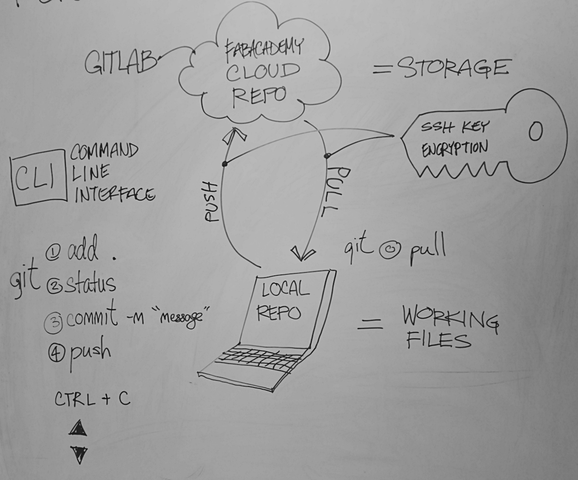 GITLAB
FABACADEMY
CLOUD
REPO
= STORAGE
SSH KEY
ENCRYPTION
O
CLI
COMMAND
LINE
INTERFACE
PUSH
PULL
git ⓪ pull
git
① add .
② status
③ commit -m "message"
④ push
CTRL + C
▲
▼
LOCAL
REPO
= WORKING
FILES